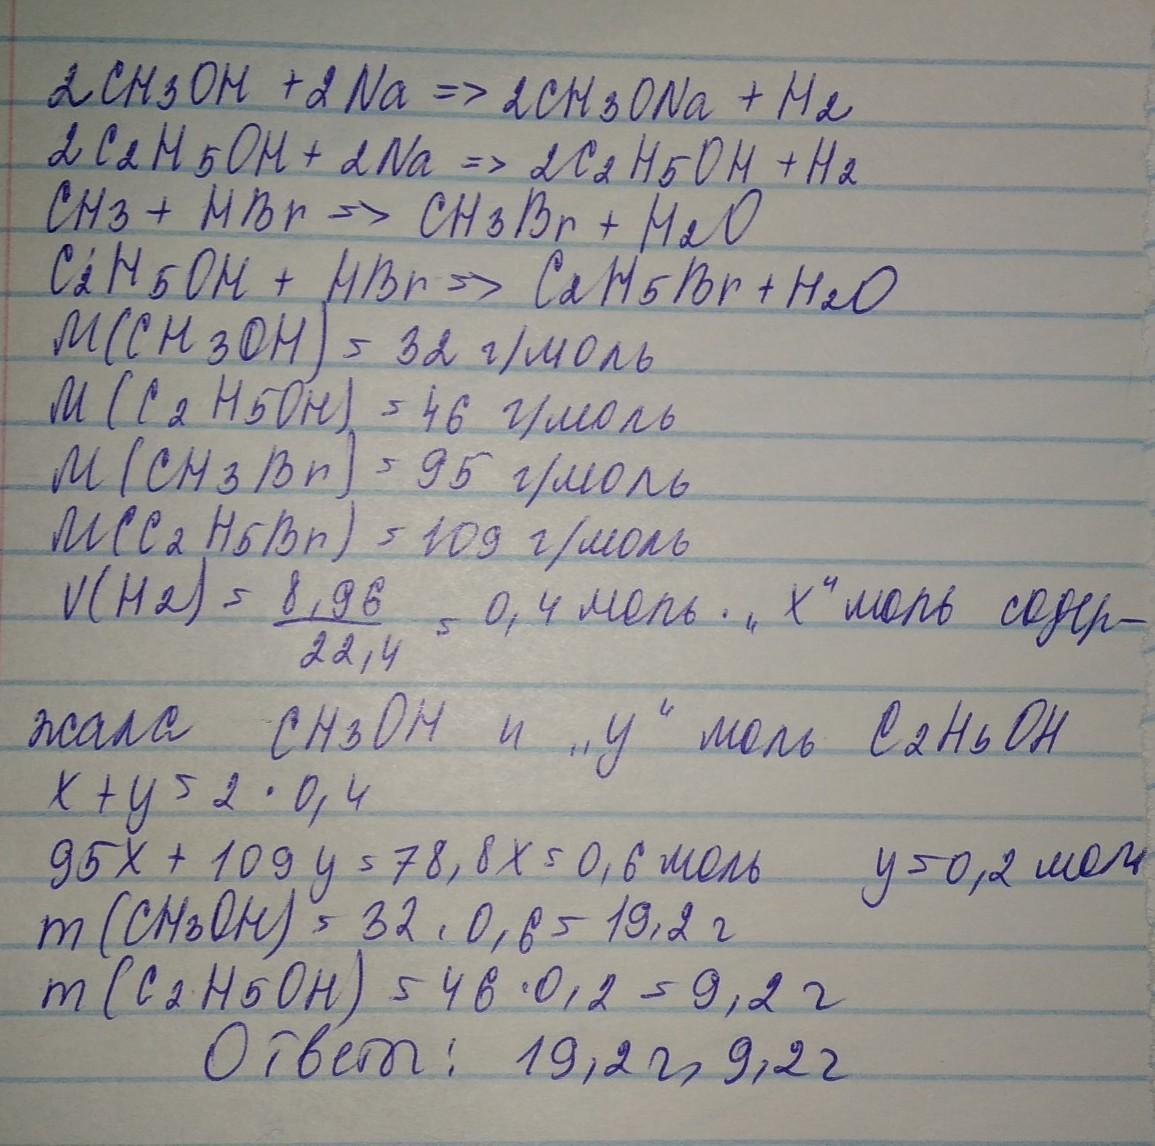 2CH3OH + 2Na => 2CH3ONa + H2
2C2H5OH + 2Na => 2C2H5OH + H2
CH3 + HBr => CH3Br + H2O
C2H5OH + HBr => C2H5Br + H2O
M(CH3OH) = 32 г/моль
M(C2H5OH) = 46 г/моль
M(CH3Br) = 95 г/моль
M(C2H5Br) = 109 г/моль
V(H2) = 8,96/22,4 = 0,4 моль. „x“ моль содер-
жала CH3OH и „y“ моль C2H5OH
x + y = 2 · 0,4
95x + 109y = 78,8x = 0,6 моль y = 0,2 мол
m(CH3OH) = 32 · 0,6 = 19,2 г
m(C2H5OH) = 46 · 0,2 = 9,2 г
Ответ: 19,2 г, 9,2 г